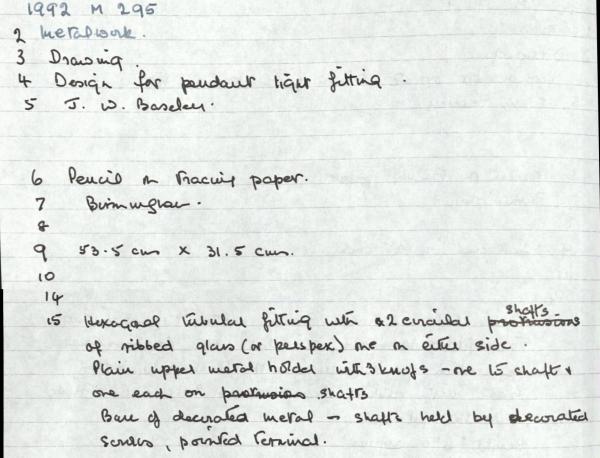 1992 M 295
2 Metalwork.
3 Drawing.
4 Design for pendant light fitting.
5 J. W. Baseley.
6 Pencil on tracing paper.
7 Birmingham.
8
9 53.5 cms × 31.5 cms.
10
14
15 Hexagonal tubular fitting with 2 circular protrusions shafts
of ribbed glass (or perspex) one on either side.
Plain upper metal holder with 3 knobs - one to shaft &
one each on protrusions shafts
Base of decorated metal - shafts held by decorated
screws, pointed terminal.